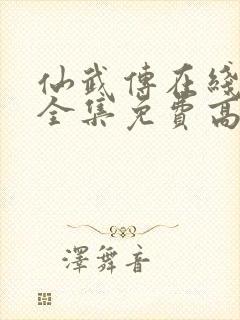 仙武傳在綫
全集免費高
澤舞音